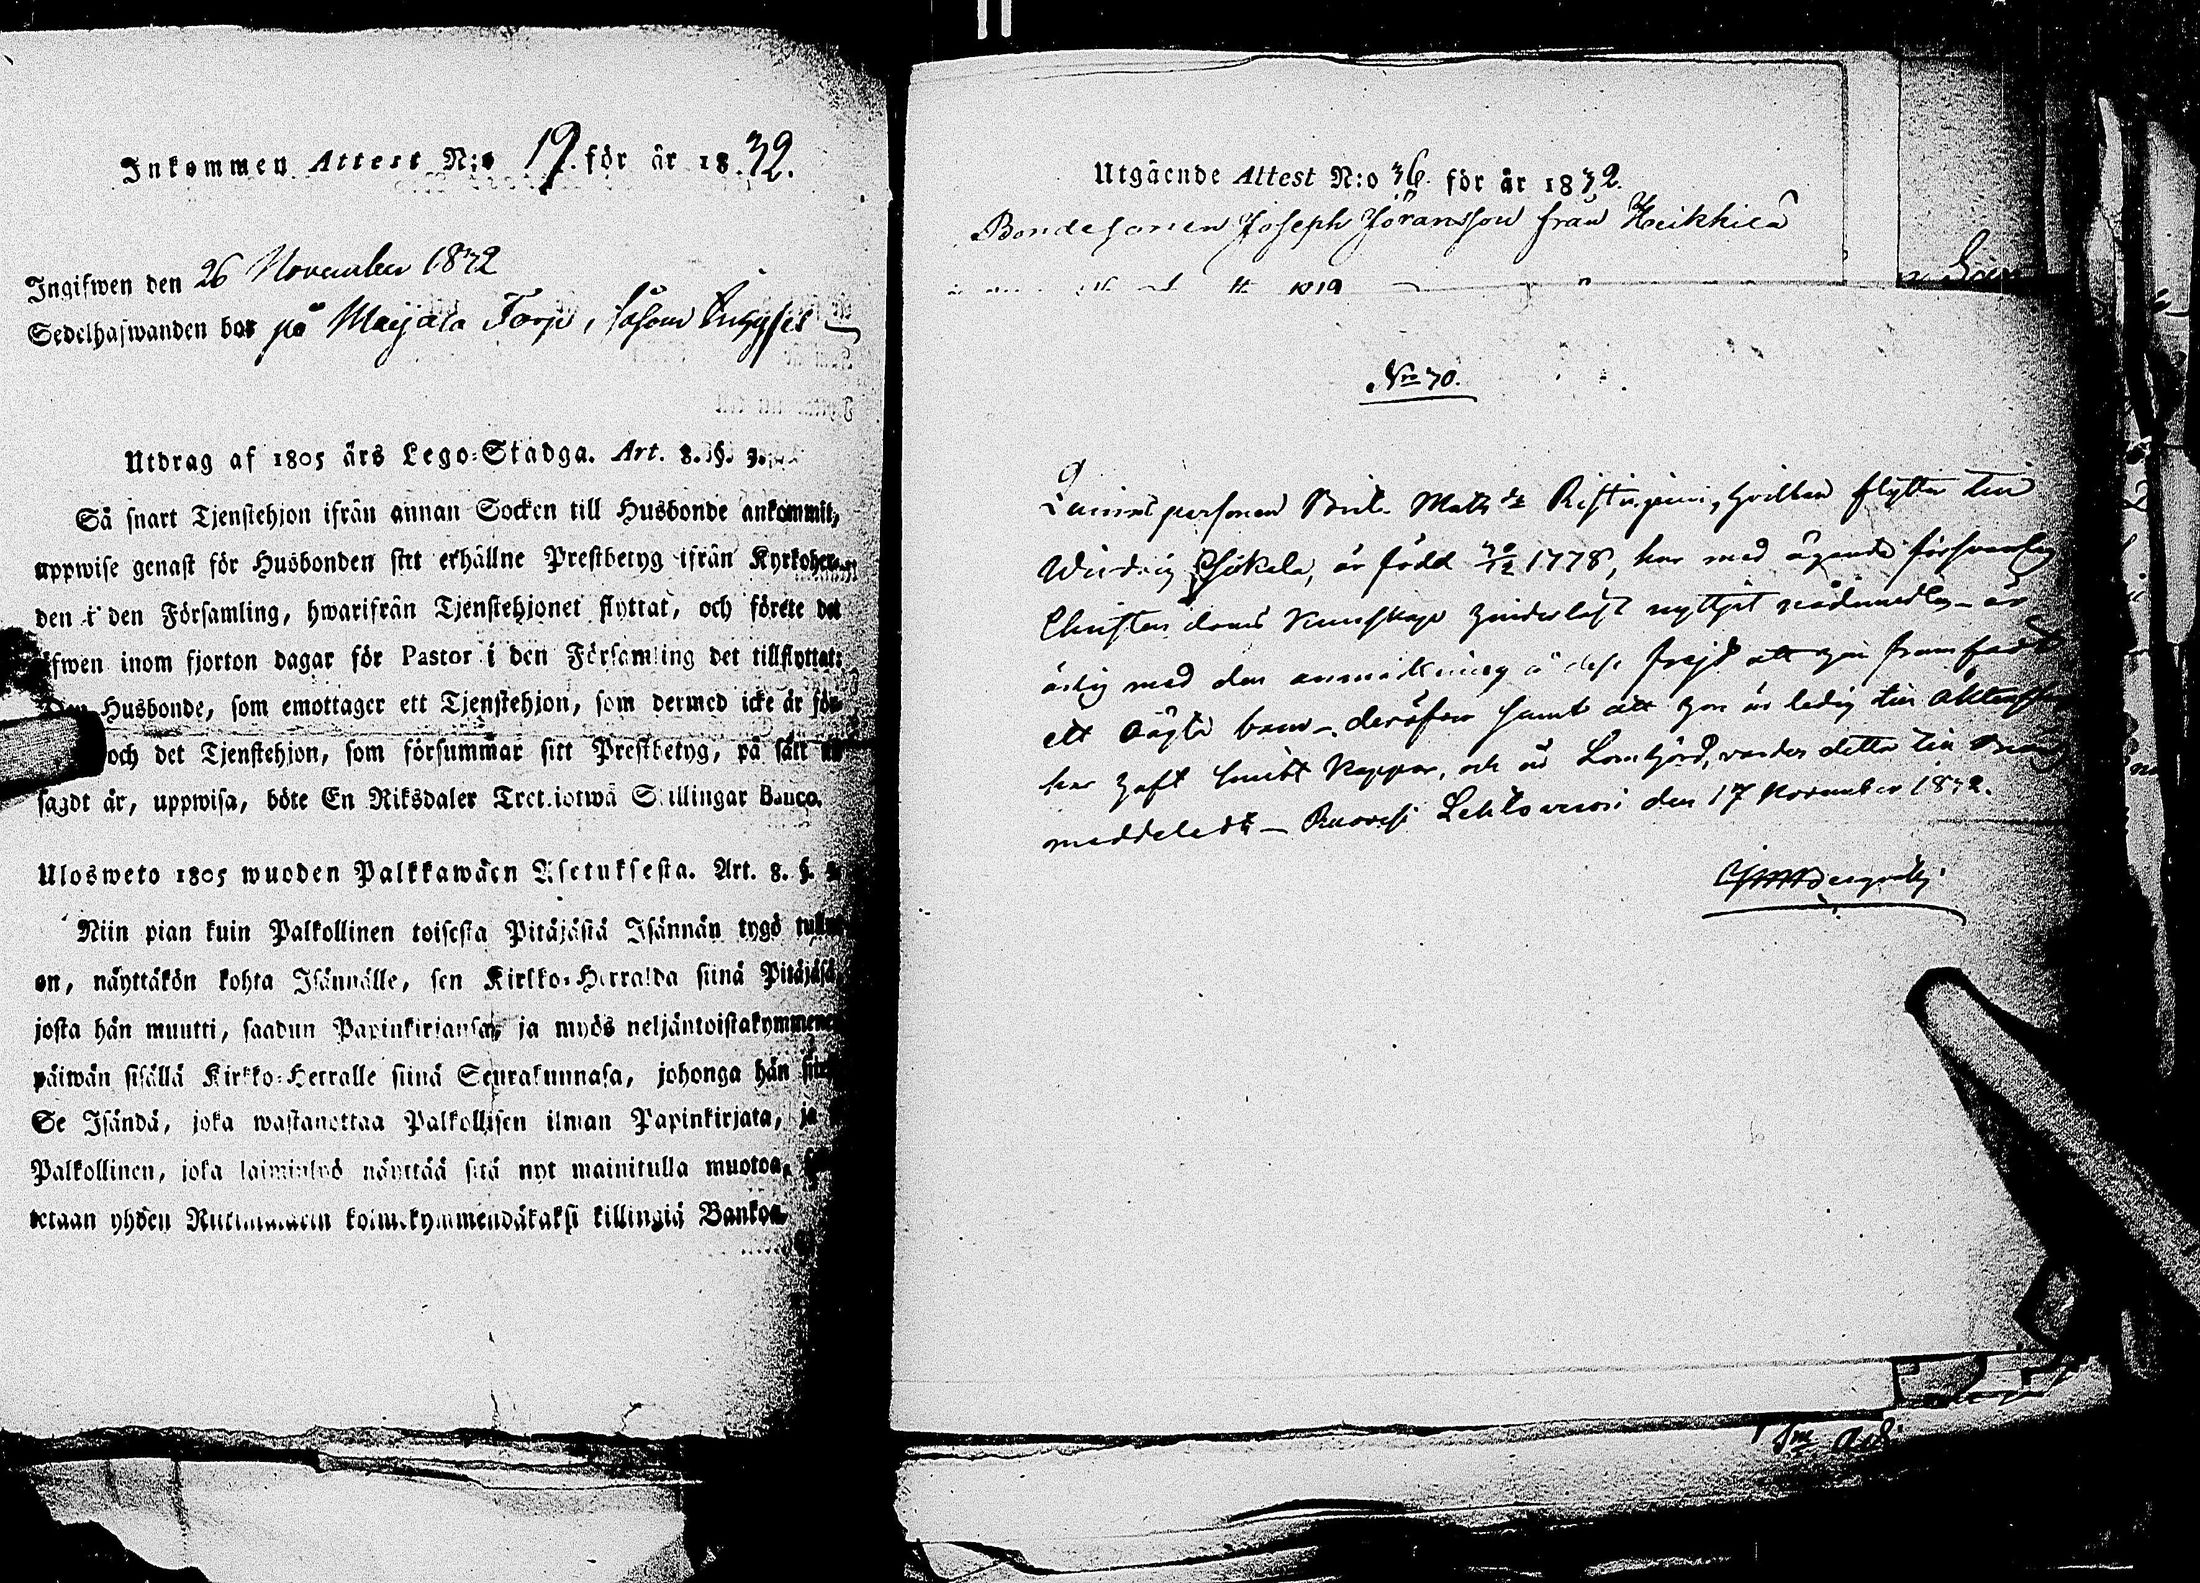 Inkommen Attest N:o 19. för år 1832.
Ingifwen den 26 November 1832
Sedelhafwanden bor på Maijala Torp, såsom
Utdrag af 1805 års Lego-Stadga. Art. 8. §. 3.
Så snart Tjenstehjon ifrån annan Socken till Husbonde ankommit,
uppwise genast för Husbonden sitt erhållne Prestbetyg ifrån Kyrkoher-
den i den Församling, hwarifrån Tjenstehjonet flyttat, och förete det
äfwen inom fjorton dagar för Pastor i den Församling det tillflyttat:
Den Husbonde, som emottager ett Tjenstehjon, som dermed icke är för-
och det Tjenstehjon, som försummar sitt Prestbetyg, på sätt
sagdt är, uppwisa, böte En Riksdaler Trettiotwå Skillingar Banco.
Ulosweto 1805 wuoden Palkkawäen Asetuksesta. Art. 8. §.
Niin pian kuin Palkollinen toisesta Pitäjästä Isännän tygö
on, näyttäkön kohta Isännälle, sen Kirkko-Herralda siinä Pitäjäsä,
josta hän muutti, saadun Papinkirjansa, ja myös neljäntoistakymmenen
päiwän sisällä Kirkko-Herralle siinä Seurakunnasa, johonga hän
Se Isändä, joka wastanottaa Palkollisen ilman Papinkirjata, ja
Palkollinen, joka laiminlyö näyttää sitä nyt mainitulla muotoa,
tetaan yhden Riikintalarin kolmekymmendäkaksi killingiä Bankos
Utgående Attest N:o 36. för år 1832.
Bondesonen Joseph Jöransson från Heikkilä
1819
Nro 70.
Qvinnspersonen Brit. Matts dr Ristinpiuni, hvilken flyttar till
Wirdois är född 30/12 1778, har med ägande försvarlig
Christendoms Kunskap hinderlöst nyttjat nådemedlen - är
ärlig med den anmärkning å dess frejd att hon framfödt
ett oägta barn - deröfver samt att hon är ledig till äktenskap
har haft smitt Koppor, och är varder detta till Bevis
meddeladt - Ruovesi Lehtoniemi den 17 November 1832.